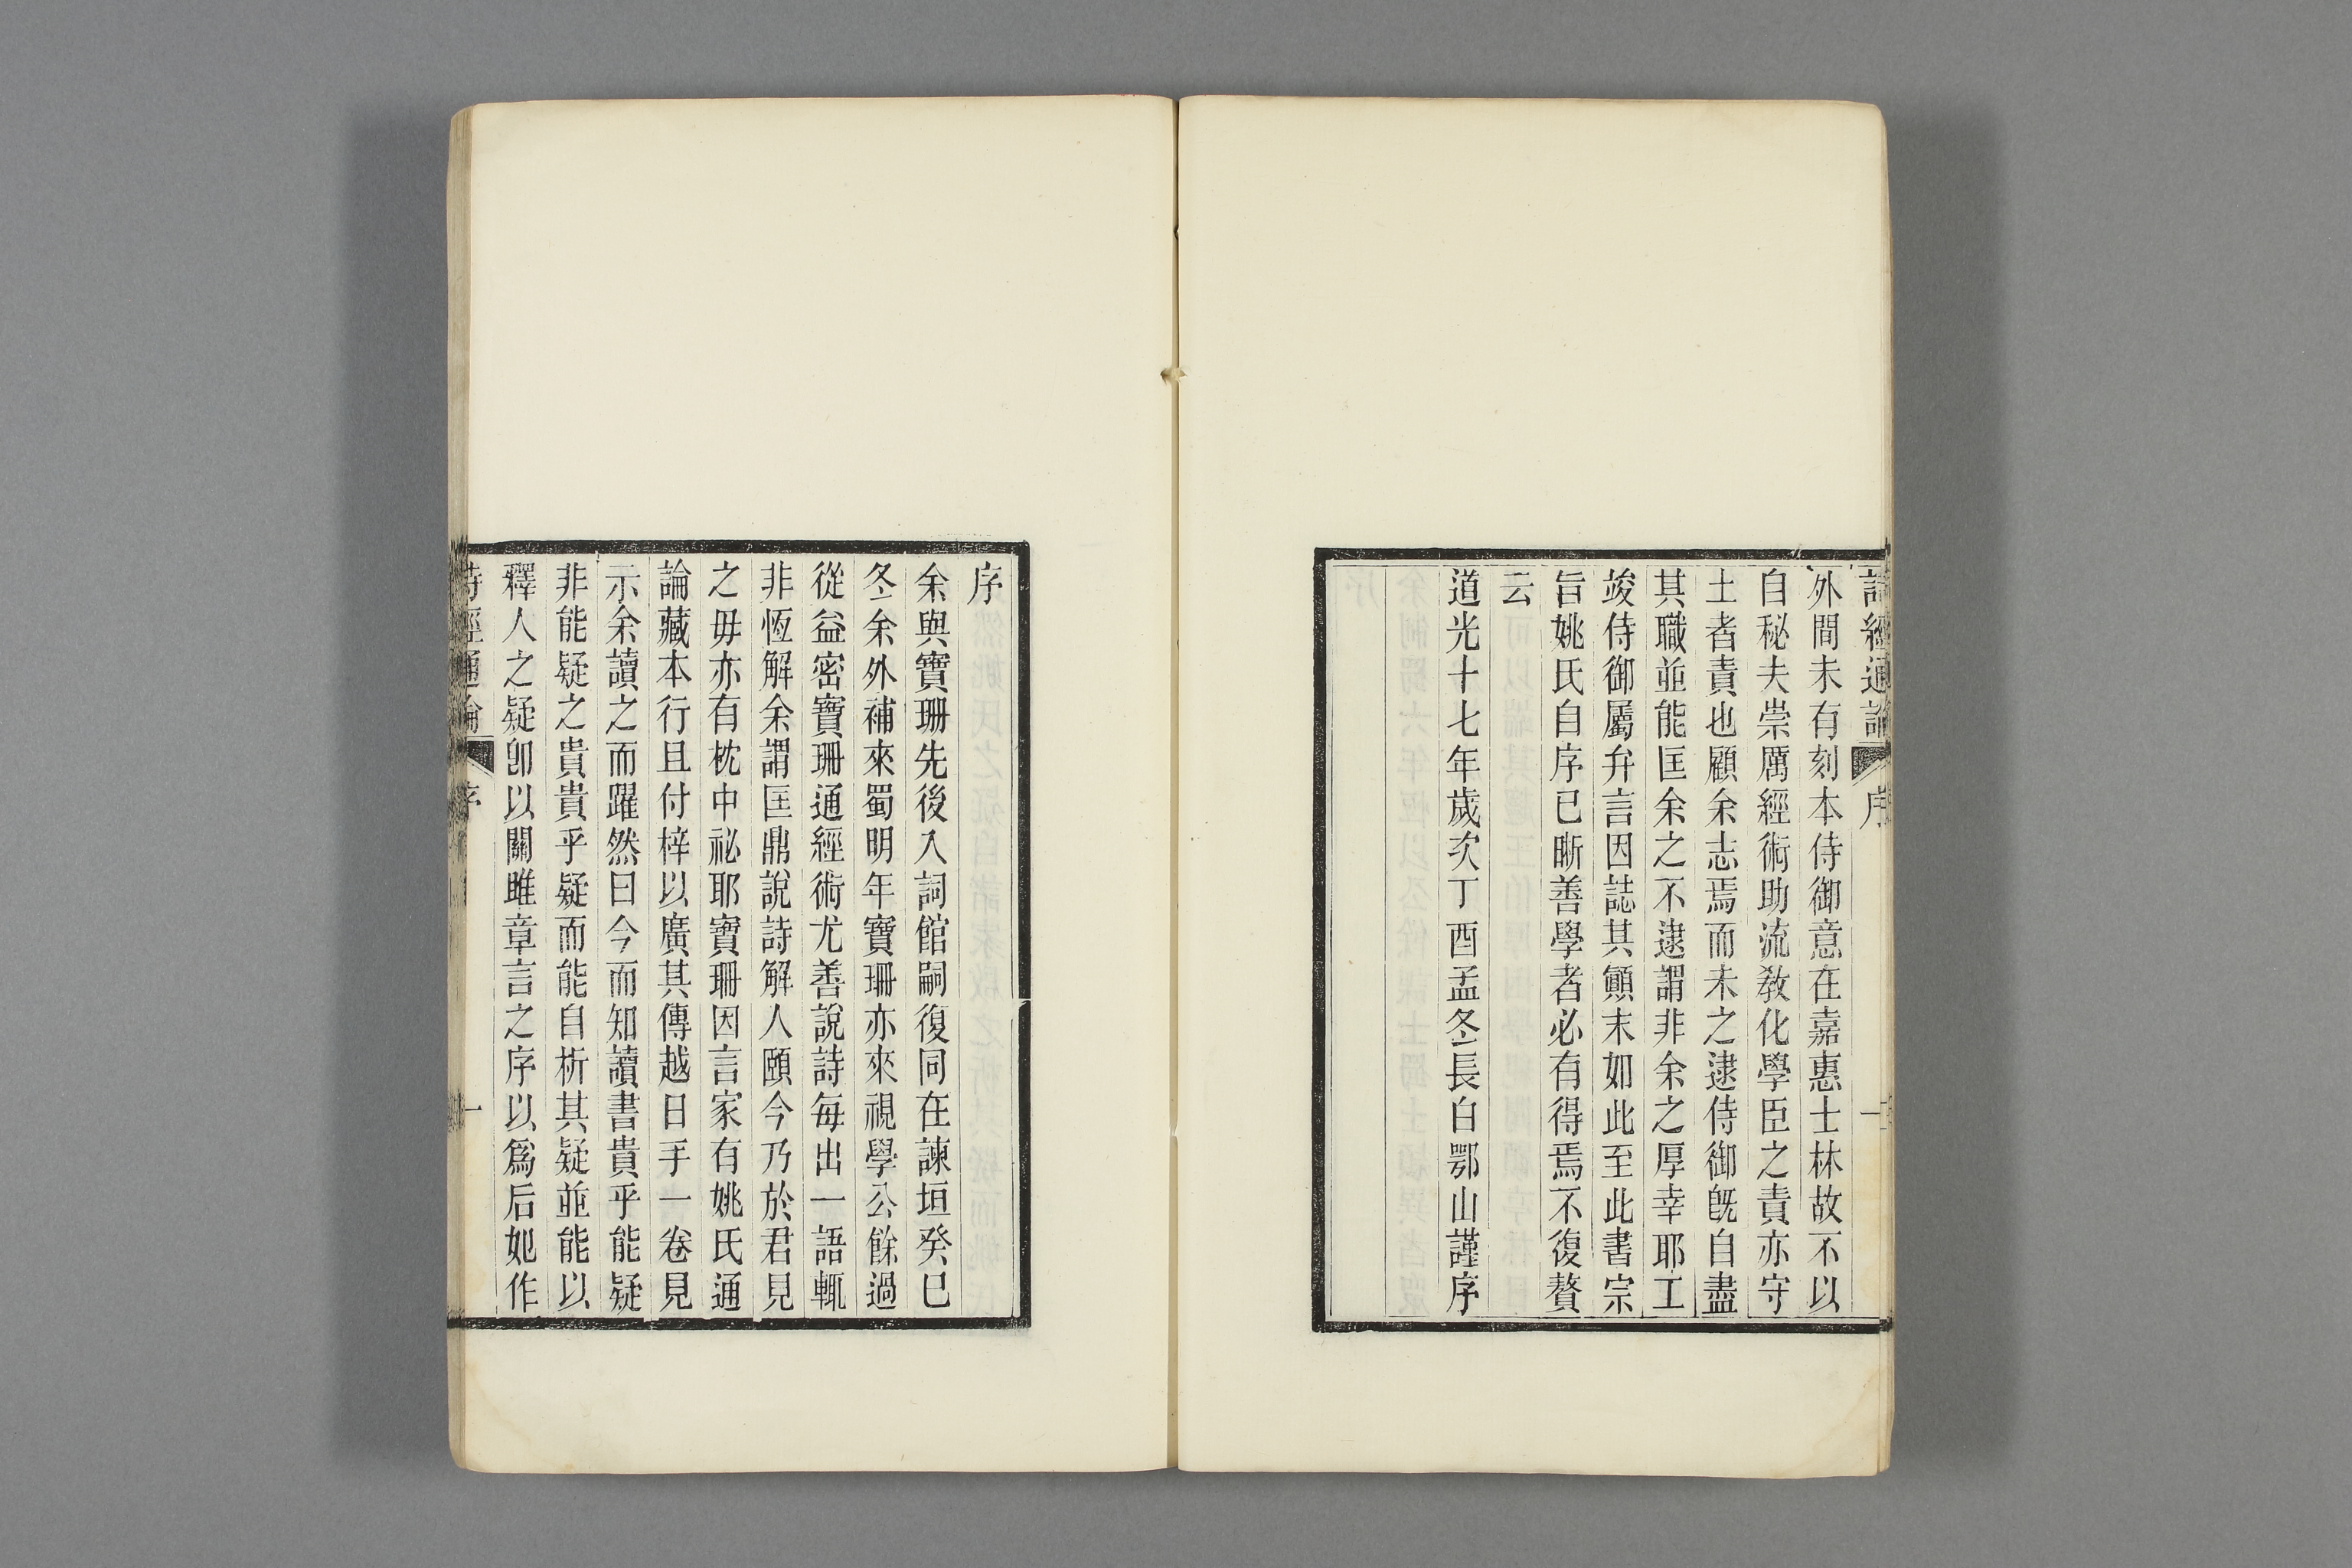 詩經通論 序 二
外間未有刻本侍御意在嘉惠士林故不以
自秘夫崇厲經術助流敎化學臣之責亦守
土者責也顧余志焉而未之逮侍御旣自盡
其職並能匡余之不逮謂非余之厚幸耶工
竣侍御屬弁言因誌其顚末如此至此書宗
旨姚氏自序已晰善學者必有得焉不復贅
云
道光十七年歲次丁酉孟冬長白鄂山謹序
序
余與寶珊先後入詞館嗣復同在諫垣癸巳
冬余外補來蜀明年寶珊亦來視學公餘過
從益密寶珊通經術尤善說詩每出一語輒
非恆解余謂匡鼎說詩解人頤今乃於君見
之毋亦有枕中祕耶寶珊因言家有姚氏通
論藏本行且付梓以廣其傳越日手一卷見
示余讀之而躍然曰今而知讀書貴乎能疑
非能疑之貴貴乎疑而能自析其疑並能以
釋人之疑卽以關雎章言之序以爲后妃作
詩經通論 序 一